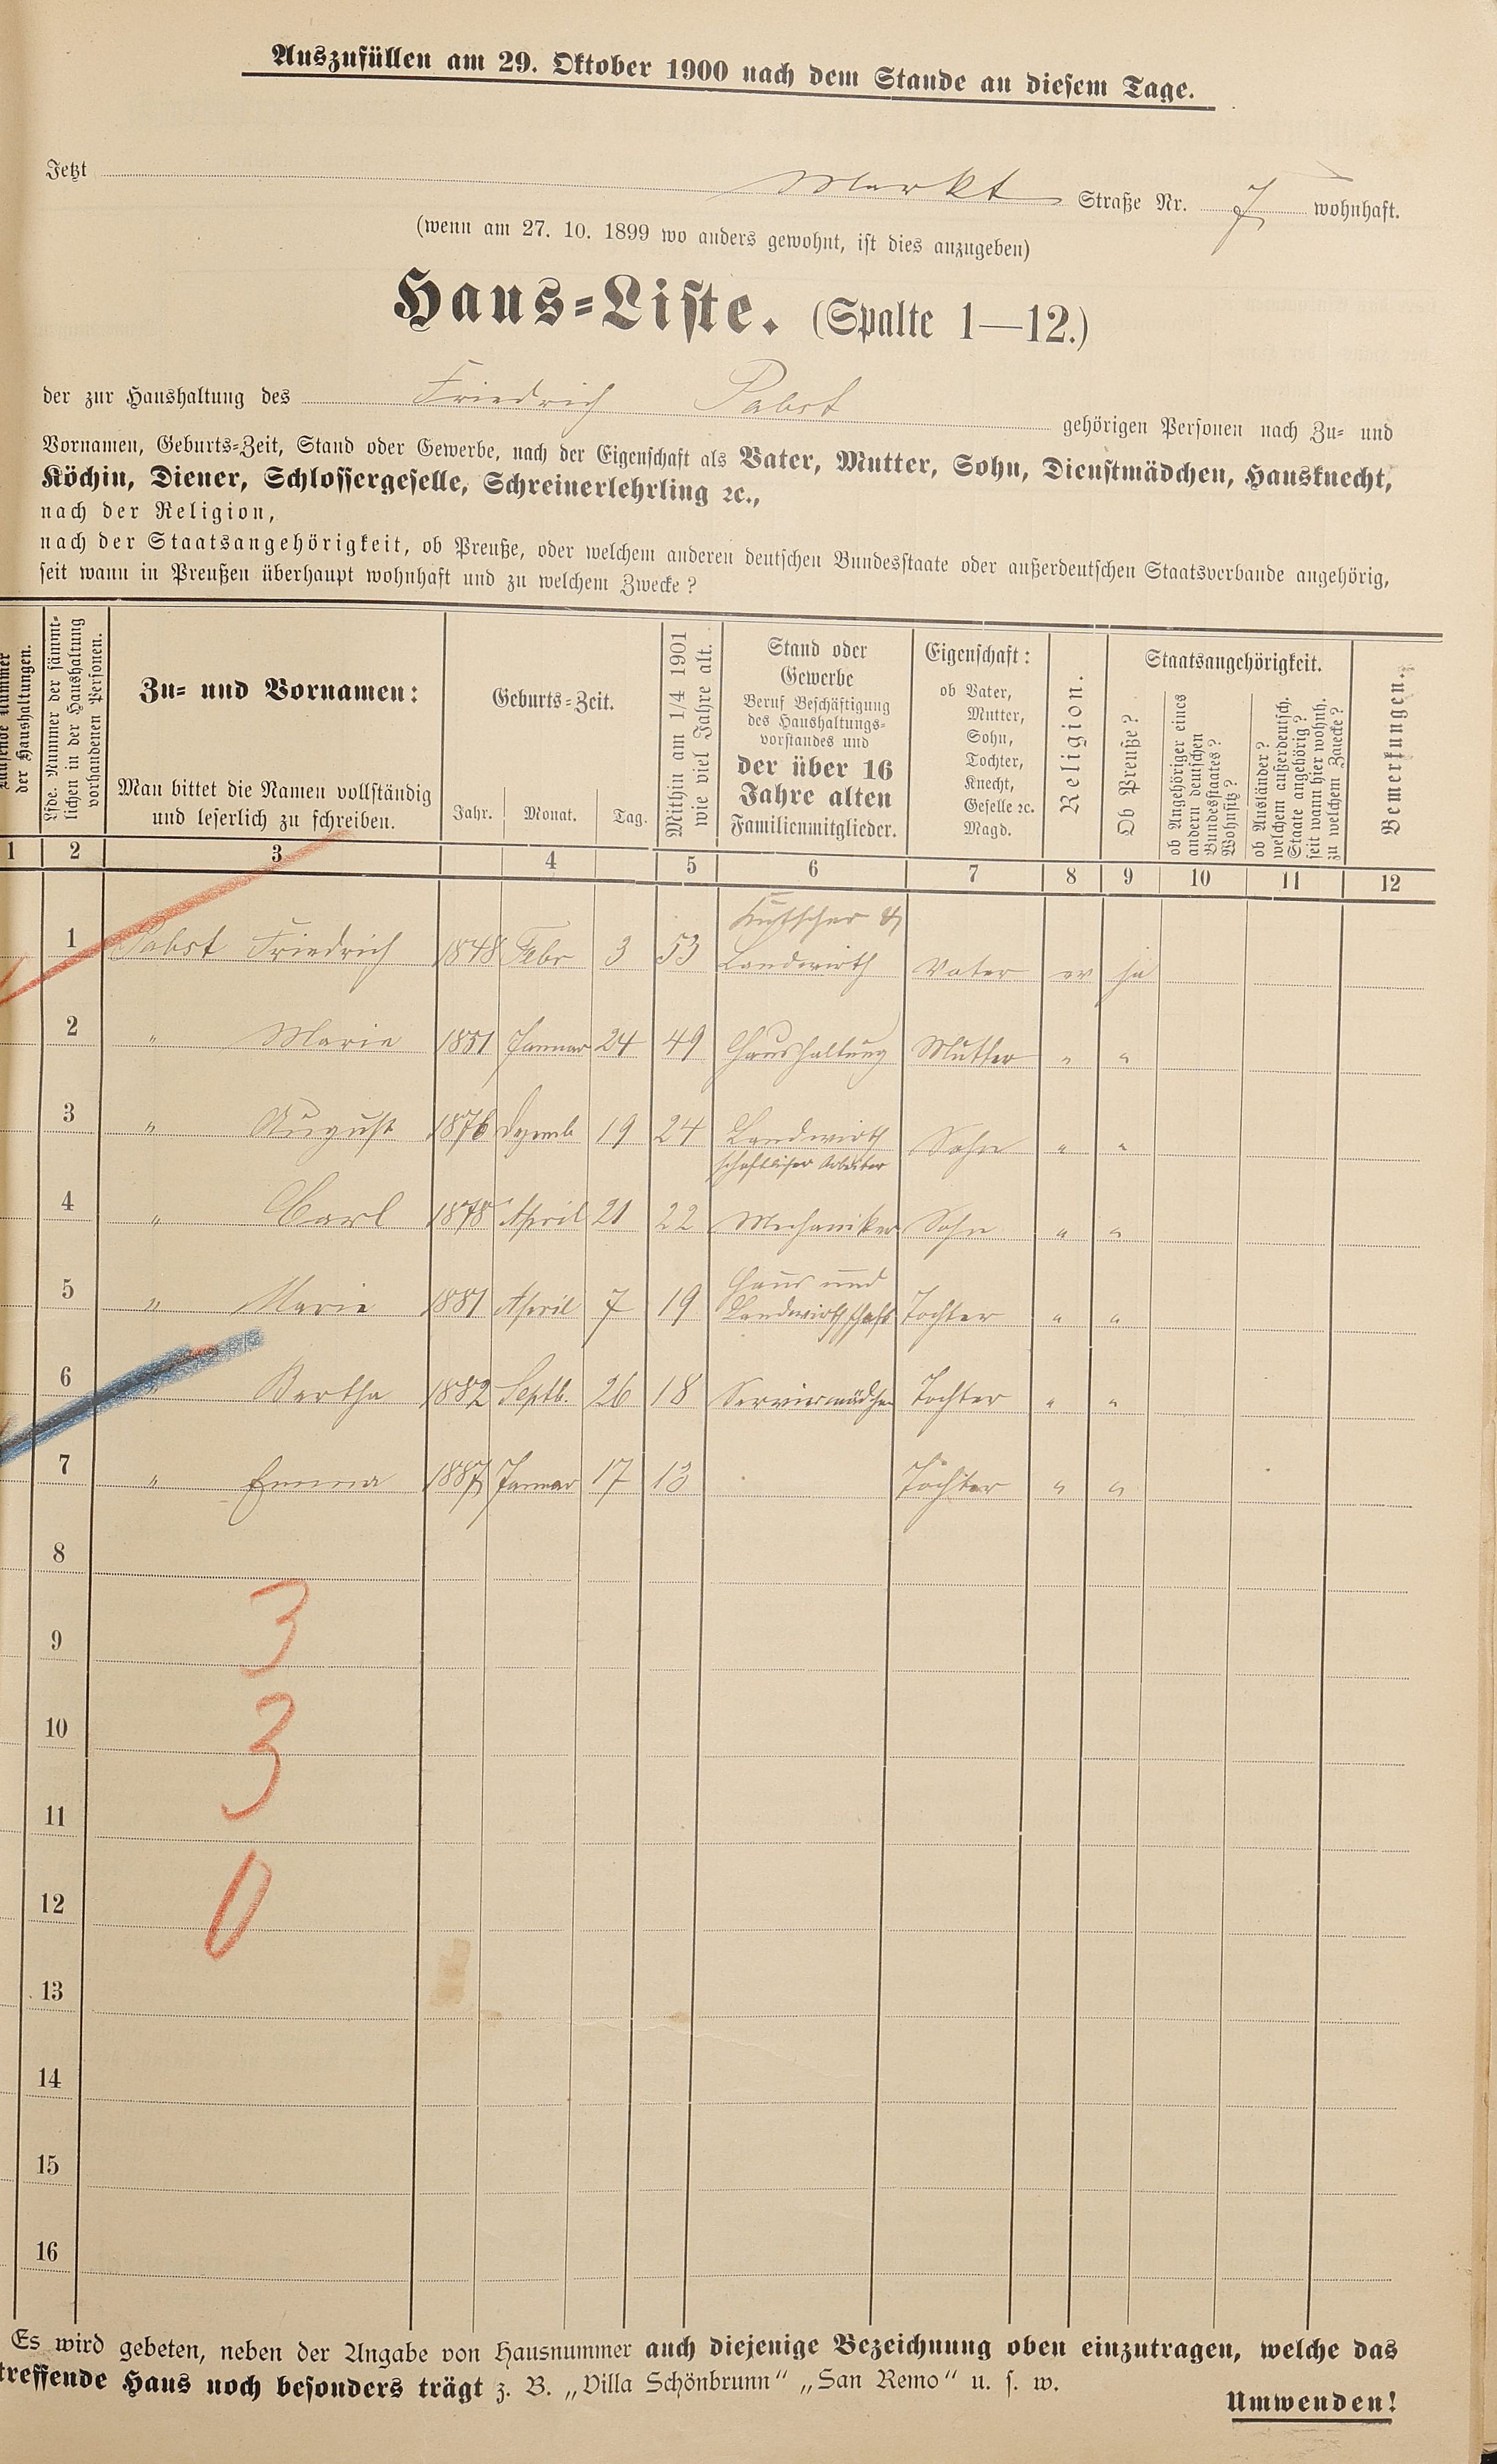 Auszufüllen am 29. Oktober 1900 nach dem Stande an diesem Tage.
Jetzt Markt Straße Nr. 7 wohnhaft.
(wenn am 27. 10. 1899 wo anders gewohnt, ist dies anzugeben)
Haus-Liste. (Spalte 1—12.)
der zur Haushaltung des Friedrich Pabst gehörigen Personen nach Zu- und
Vornamen, Geburts-Zeit, Stand oder Gewerbe, nach der Eigenschaft als Vater, Mutter, Sohn, Dienstmädchen, Hausknecht,
Köchin, Diener, Schlossergeselle, Schreinerlehrling ꝛc.,
nach der Religion,
nach der Staatsangehörigkeit, ob Preuße, oder welchem anderen deutschen Bundesstaate oder außerdeutschen Staatsverbande angehörig,
seit wann in Preußen überhaupt wohnhaft und zu welchem Zwecke?
der Haushaltungen.
Lfde. Nummer der sämmt-
lichen in der Haushaltung
vorhandenen Personen.
Zu- und Vornamen:
Man bittet die Namen vollständig
und leserlich zu schreiben.
Geburts-Zeit.
Jahr. Monat. Tag.
Mithin am 1/4 1901
wie viel Jahre alt.
Stand oder
Gewerbe
Beruf Beschäftigung
des Haushaltungs-
vorstandes und
der über 16
Jahre alten
Familienmitglieder.
Eigenschaft:
ob Vater,
Mutter,
Sohn,
Tochter,
Knecht,
Geselle ꝛc.
Magd.
Religion.
Staatsangehörigkeit.
Ob Preuße?
ob Angehöriger eines
andern deutschen
Bundesstaates?
Wohnsitz?
ob Ausländer?
welchem außerdeutsch.
Staate angehörig?
seit wann hier wohnh.
zu welchem Zwecke?
Bemerkungen.
1 2 3 4 5 6 7 8 9 10 11 12
Kutscher &
1 Pabst Friedrich 1848 Febr 3 53 Landwirth Vater ev ja
2 " Marie 1851 Januar 24 49 Haushaltung Mutter " "
3 " August 1876 Dezemb 19 24 Landwirth Sohn " "
schaftlicher Arbeiter
4 " Carl 1878 April 21 22 Mechaniker Sohn " "
Haus und
5 " Marie 1881 April 7 19 Landwirthschaft Tochter " "
6 " Bertha 1882 Septb. 26 18 Serviermädchen Tochter " "
7 " Emma 1887 Januar 17 13 Tochter " "
8
3
9
10
3
11
12
0
13
14
15
16
Es wird gebeten, neben der Angabe von Hausnummer auch diejenige Bezeichnung oben einzutragen, welche das
treffende Haus noch besonders trägt z. B. „Villa Schönbrunn“ „San Remo“ u. s. w.
Umwenden!